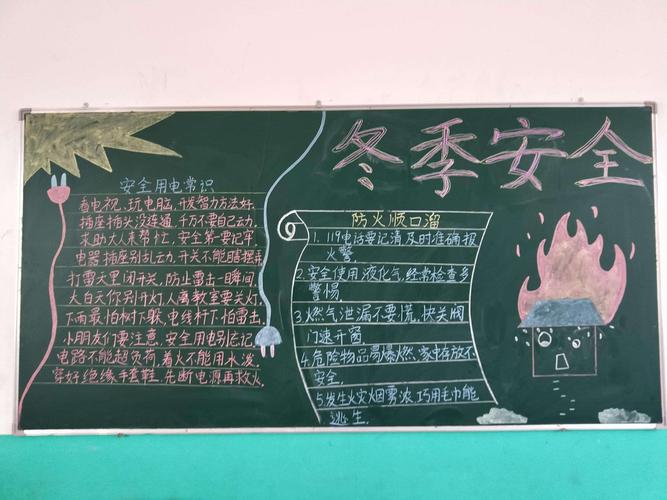 冬季安全
安全用电常识
看电视、玩电脑,开发智力方法好.
插座插头没连通,千万不要自己动.
求助大人来帮忙,安全第一要记牢
电器插座别乱动,开关不能瞎摆弄
打雷天里闭开关,防止雷击一瞬间.
大白天你别开灯人离教室要关灯.
下雨最怕树下躲,电线杆下怕雷击.
小朋友们要注意,安全用电别忘记
电路不能超负荷,着火不能用水泼.
穿好绝缘手套鞋,先断电源再救火.
防火顺口溜
1.119电话要记清及时准确报
火警
2.安全使用液化气,经常检查多
警惕.
3.燃气泄漏不要慌,快关阀
门速开窗
4.危险物品易爆燃,家中存放不
安全.
5.发生火灾烟雾浓,巧用毛巾能
逃生.